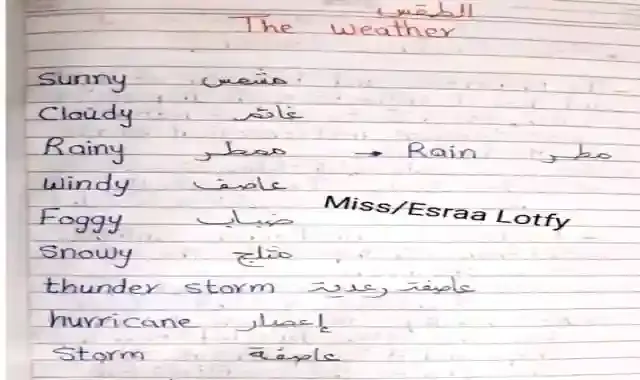 الطقس
The Weather
Sunny مشمس
Cloudy غائم
Rainy ممطر → Rain مطر
Windy عاصف
Miss/Esraa Lotfy
Foggy ضباب
Snowy مثلج
thunder storm عاصفة رعدية
hurricane إعصار
Storm عاصفة